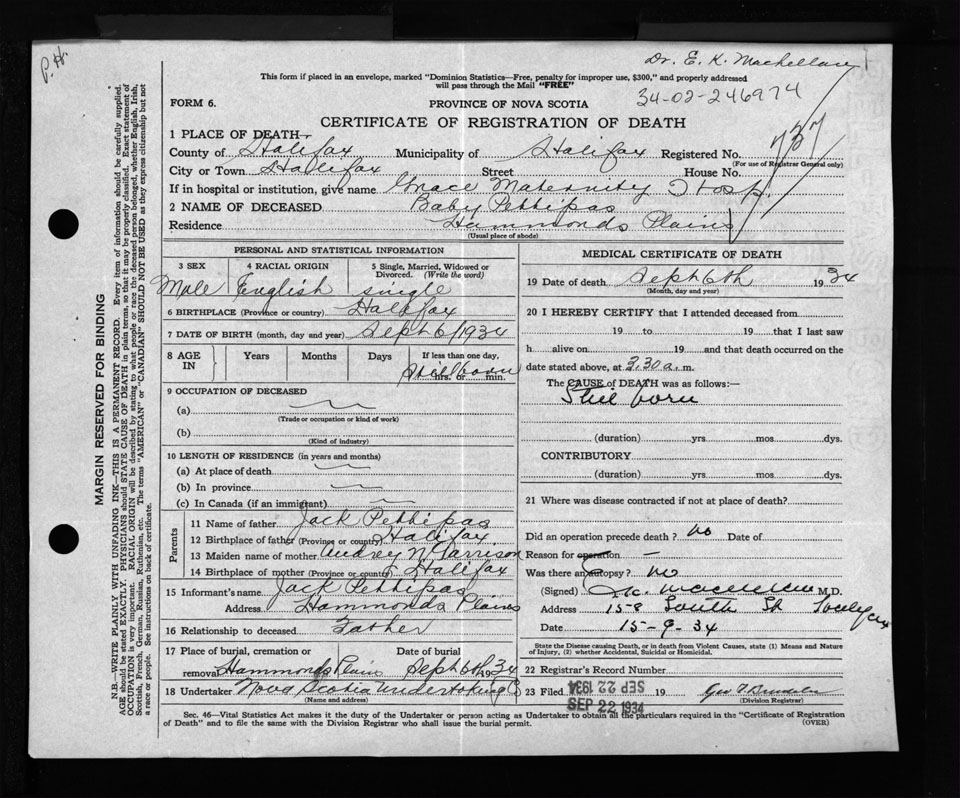 P.H.
Dr. E. K. Machellan
This form if placed in an envelope, marked "Dominion Statistics—Free, penalty for improper use, $300," and properly addressed
will pass through the Mail "FREE"
34-02-246974
FORM 6.
PROVINCE OF NOVA SCOTIA
CERTIFICATE OF REGISTRATION OF DEATH
1 PLACE OF DEATH—
County of Halifax Municipality of Halifax Registered No. 737
(For use of Registrar General only)
City or Town Halifax Street House No.
If in hospital or institution, give name Grace Maternity Hosp.
2 NAME OF DECEASED Baby Pettipas
Residence Hammonds Plains
(Usual place of abode)
PERSONAL AND STATISTICAL INFORMATION
3 SEX 4 RACIAL ORIGIN 5 Single, Married, Widowed or
Divorced. (Write the word)
Male English single
6 BIRTHPLACE (Province or country) Halifax
7 DATE OF BIRTH (month, day and year) Sept 6/1934
8 AGE IN Years Months Days If less than one day,
Stillborn
hrs. or min.
9 OCCUPATION OF DECEASED
(a)
(Trade or occupation or kind of work)
(b)
(Kind of industry)
10 LENGTH OF RESIDENCE (in years and months)
(a) At place of death
(b) In province
(c) In Canada (if an immigrant)
Parents
11 Name of father Jack Pettipas
12 Birthplace of father (Province or country) Halifax
13 Maiden name of mother Audrey N Garrison
14 Birthplace of mother (Province or country) Halifax
15 Informant's name Jack Pettipas
Address Hammonds Plains
16 Relationship to deceased Father
17 Place of burial, cremation or Date of burial
removal Hammonds Plain Sept 6th 1934
18 Undertaker Nova Scotia Undertaking Co
(Name and address)
MEDICAL CERTIFICATE OF DEATH
19 Date of death Sept 6th 1934
(Month, day and year)
20 I HEREBY CERTIFY that I attended deceased from
19 to 19 that I last saw
h alive on 19 and that death occurred on the
date stated above, at 3.30 a. m.
The CAUSE of DEATH was as follows:—
Still born
(duration) yrs mos dys.
CONTRIBUTORY
(duration) yrs mos dys.
21 Where was disease contracted if not at place of death?
Did an operation precede death? No Date of
Reason for operation —
Was there an autopsy? no
(Signed) M.D.
Address 158 South St
Date 15-9-34
State the Disease causing Death, or in death from Violent Causes, state (1) Means and Nature
of Injury, (2) whether Accidental, Suicidal or Homicidal.
22 Registrar's Record Number
23 Filed SEP 22 1934 19
SEP 22 1934
(Division Registrar)
Sec. 46—Vital Statistics Act makes it the duty of the Undertaker or person acting as Undertaker to obtain all the particulars required in the "Certificate of Registration
of Death" and to file the same with the Division Registrar who shall issue the burial permit.
(OVER)
MARGIN RESERVED FOR BINDING
N.B.—WRITE PLAINLY WITH UNFADING INK—THIS IS A PERMANENT RECORD. Every item of information should be carefully supplied.
AGE should be stated EXACTLY. PHYSICIANS should STATE CAUSE OF DEATH in plain terms, so that it may be properly classified. Exact statement of
OCCUPATION is very important. RACIAL ORIGIN will be described by stating to what people or race the deceased person belonged, whether English, Irish,
Scottish, French, German, Russian, Ruthenian, etc. The terms "AMERICAN" or "CANADIAN" SHOULD NOT BE USED as they express citizenship but not
a race or people. See instructions on back of certificate.